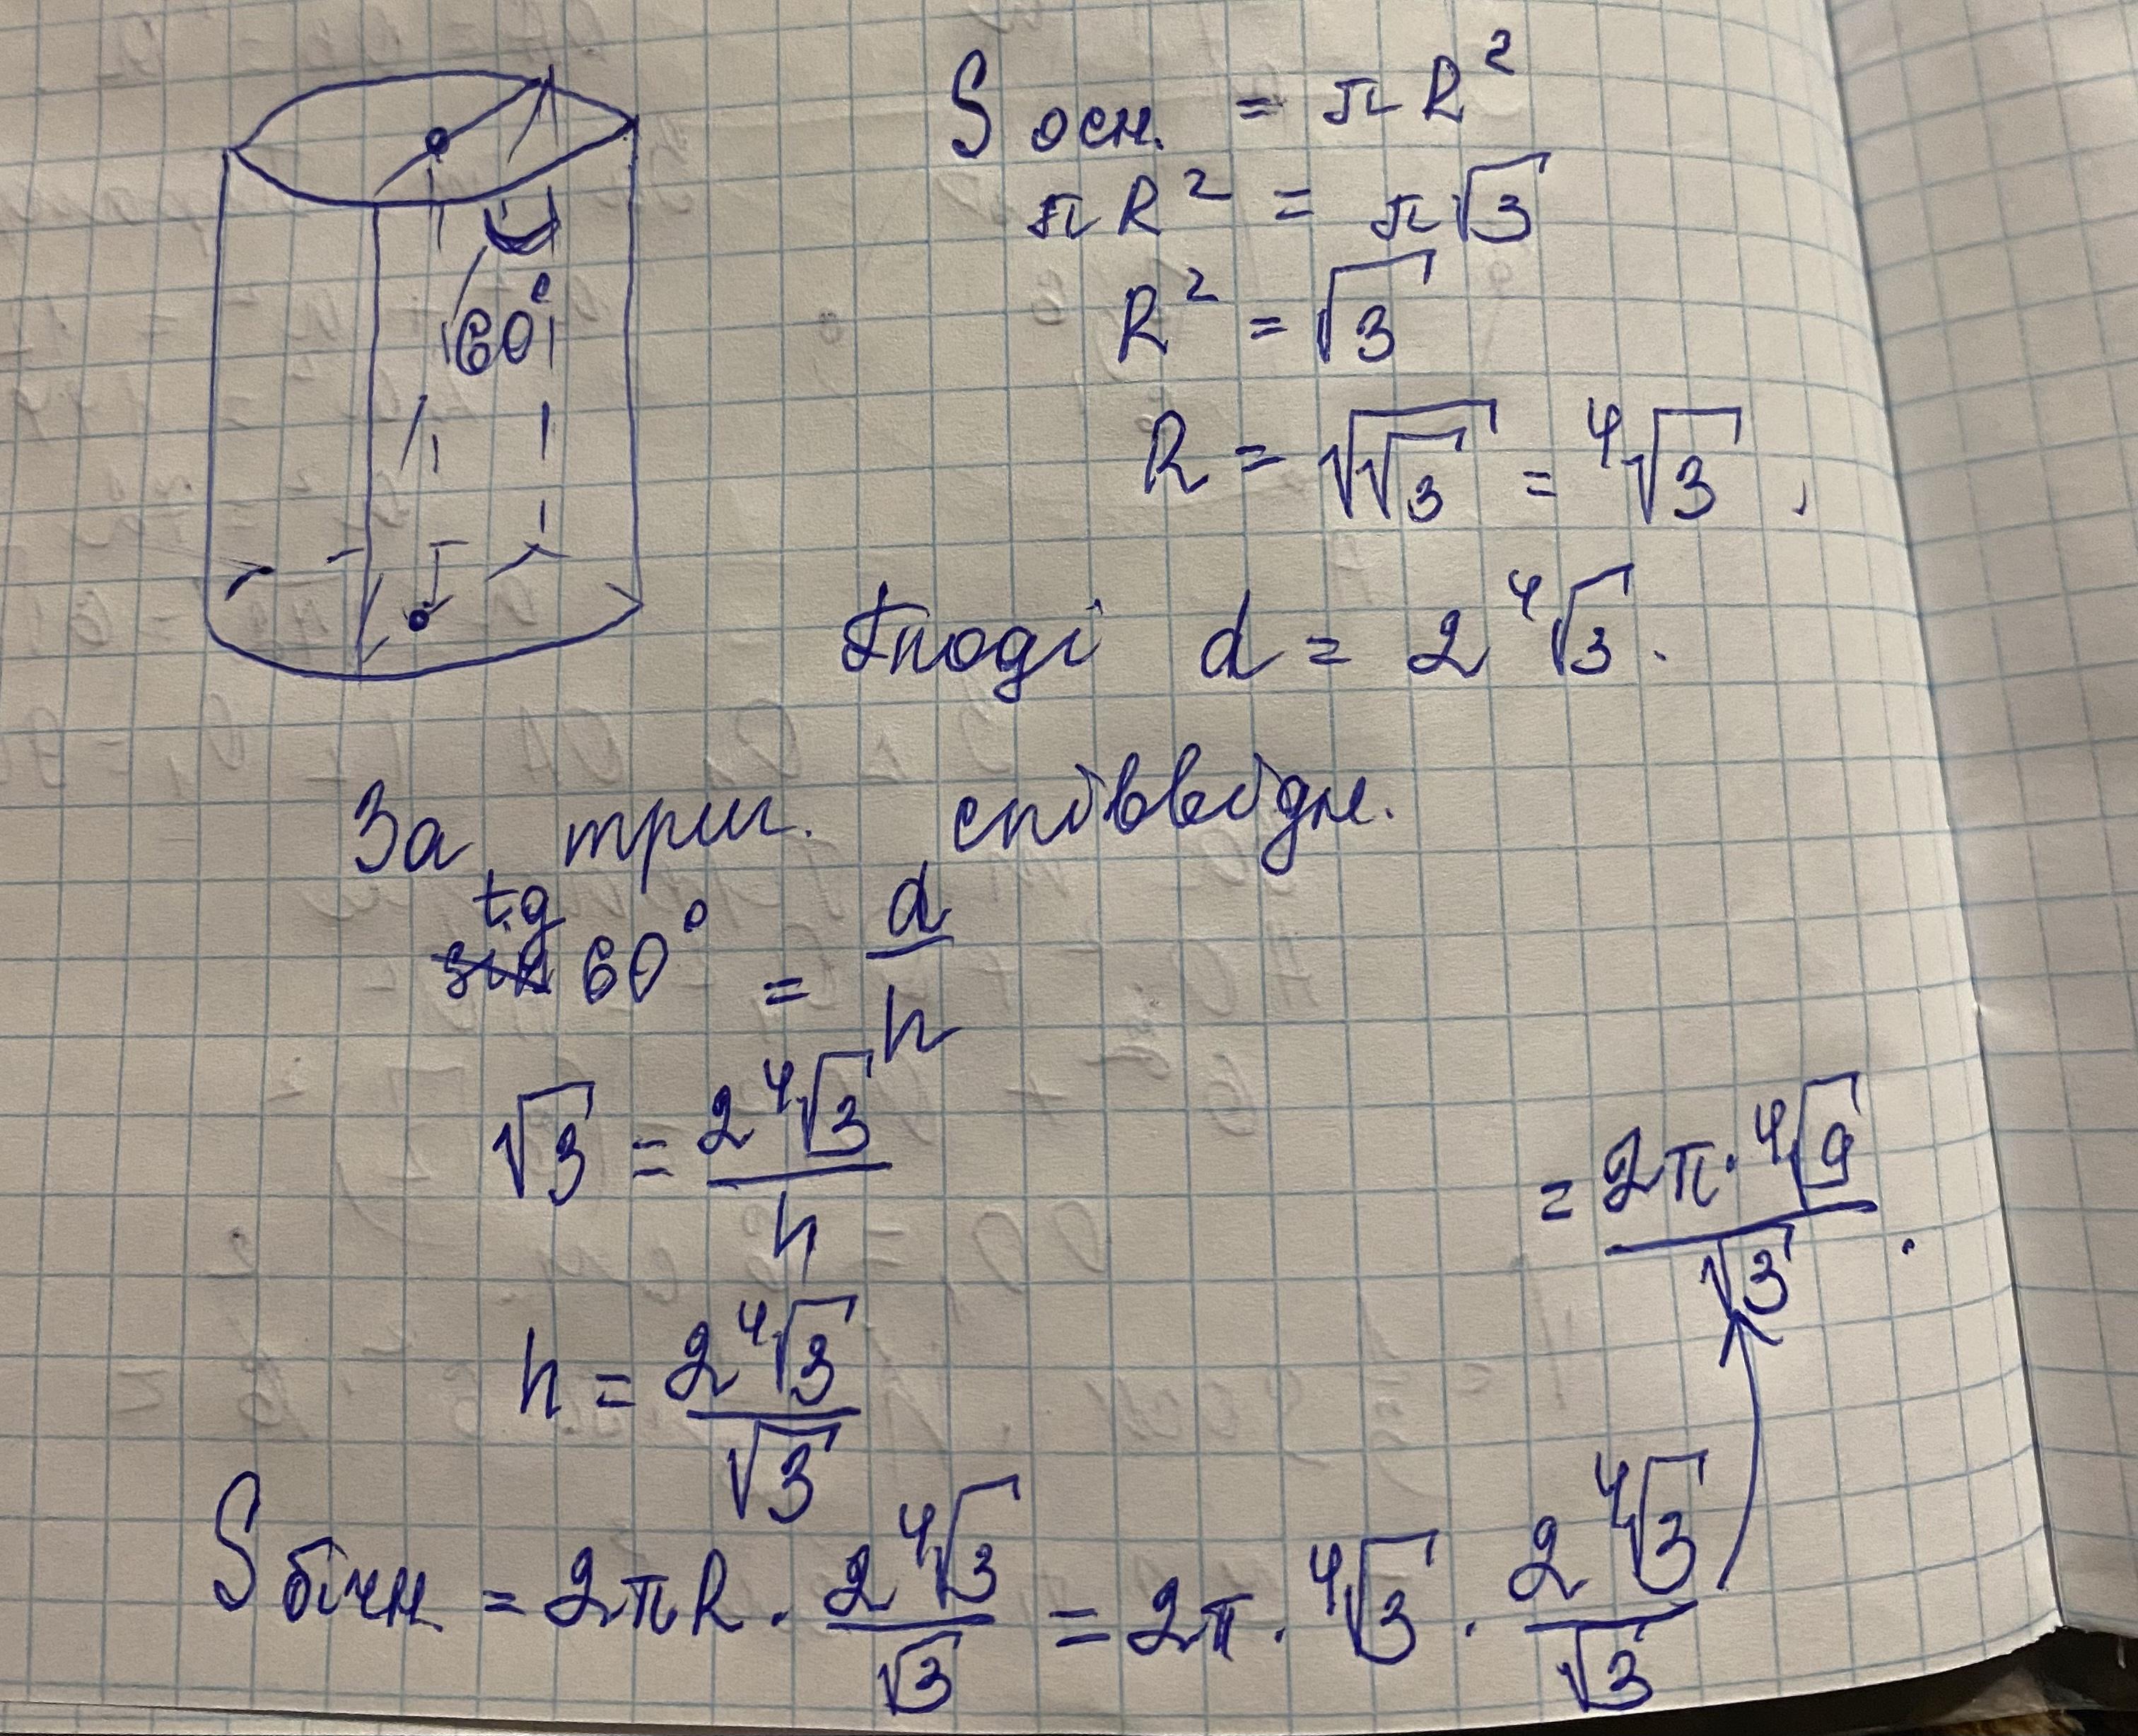 60°
S осн. = πR²
πR² = π√3
R² = √3
R = √√3 = ⁴√3,
Тоді d = 2⁴√3.
За триг. співвідн.
tg
60° = d/h
√3 = 2⁴√3/h
h = 2⁴√3/√3
S бічн = 2πR · 2⁴√3/√3 = 2π · ⁴√3 · 2⁴√3/√3
= 2π·⁴√9/√3.